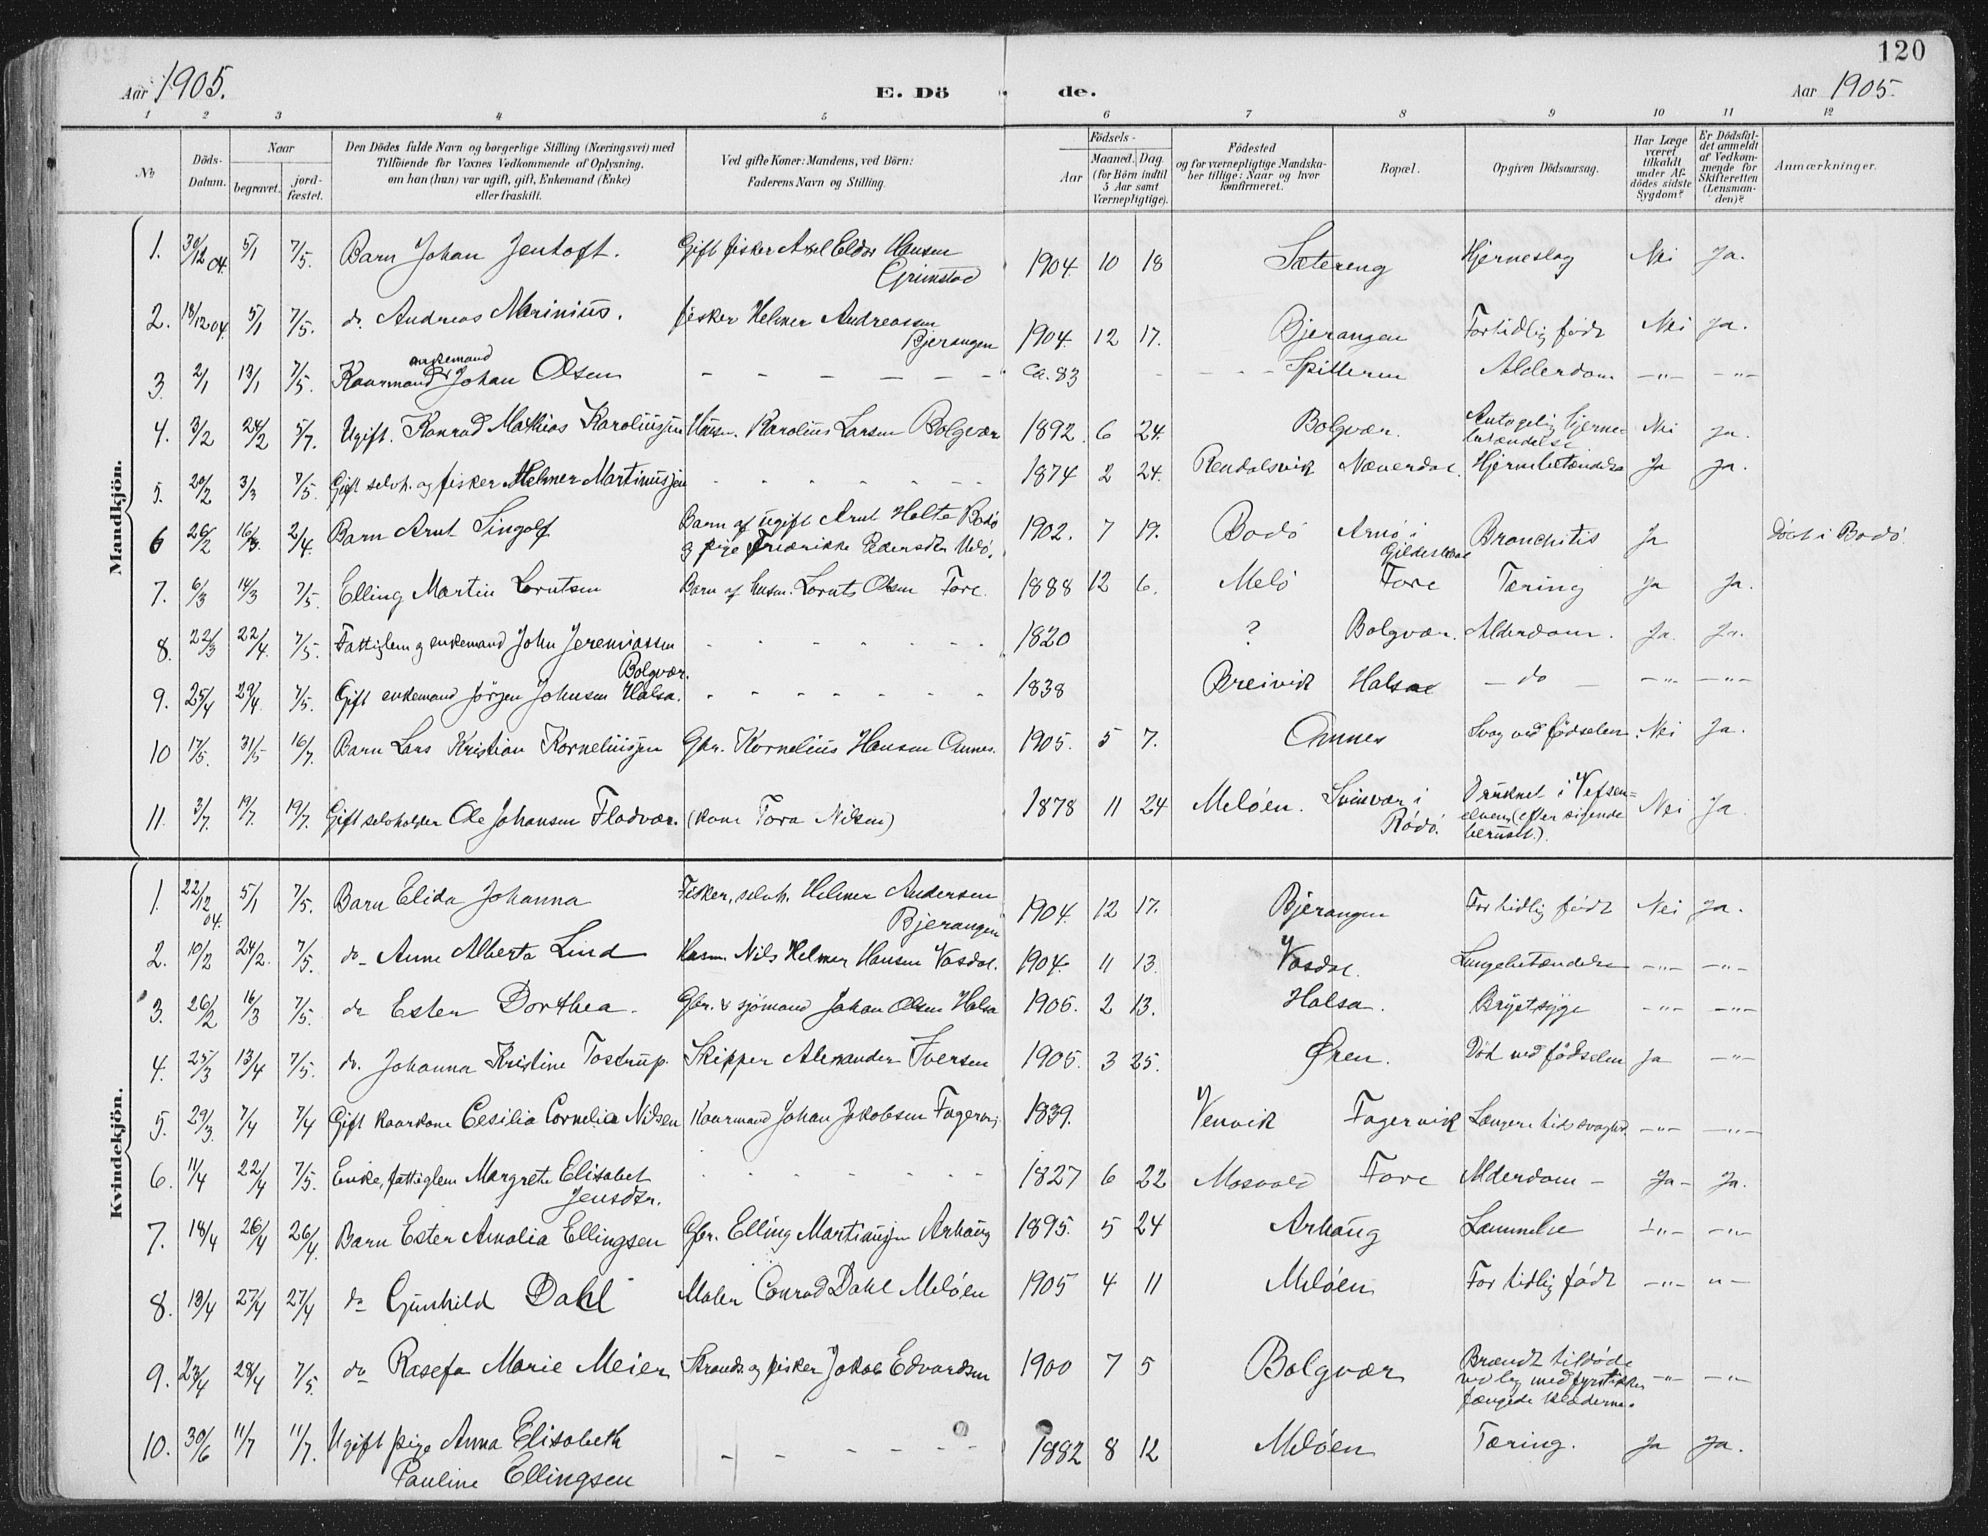 120
Aar 1905.
E. Dö de.
Aar 1905.
1 2 3 4 5 6 7 8 9 10 11 12
No
Döds-Datum.
Naar begravet. jord-fæstet.
Den Dödes fulde Navn og borgerlige Stilling (Næringsvei) med
Tilföiende for Voxnes Vedkommende af Oplysning,
om han (hun) var ugift, gift, Enkemand (Enke)
eller fraskilt.
Ved gifte Koner: Mandens, ved Börn:
Faderens Navn og Stilling.
Födsels-
Aar Maaned. Dag.
(for Börn indtil
5 Aar samt
Værnepligtige).
Födested
og for værnepligtige Mandska-
ber tillige: Naar og hvor
konfirmeret.
Bopæl.
Opgiven Dödsaarsag.
Har Læge
været
tilkaldt
under Af-
dödes sidste
Sygdom?
Er Dödsfal-
det anmeldt
af Vedkom-
mende for
Skifteretten
(Lensman-
den)?
Anmærkninger.
Mandkjön.
1. 30/12 04. 5/1 7/5. Barn Johan Jentoft. Gift fisker Axel Eldor Hansen Grimstad 1904 10 18 Sætereng Hjerneslag Nei Ja.
2. 18/12 04. 5/1 7/5. do. Andreas Marinius. fisker Helmer Andreassen Bjerangen 1904. 12 17. Bjerangen For tidlig født Nei Ja.
3 2/1 13/1 7/5. Kaarmand & enkemand Johan Olsen - - - - - - ca. 83 - - - Spilleren Alderdom -"- -"-
4. 3/2 24/2 5/7. Ugift. Konrad Mathias Karoliussen Husm. Karolius Larsen Bolgvær 1892. 6 24. Bolgvær. Antagelig hjerne-betændelse Nei Ja.
5. 20/2 3/3 7/5. Gift selvh. og fisker Helmer Martinussen - - - - - - 1874 2 24. Rendalsvik Næverdal Hjernebetændelse Ja Ja.
6 26/2 16/3. 2/4. Barn Arnt Lingolf Barn af ugift Arnt Holte Bodø og pige Fredrikke Pedersdtr Melö. 1902. 7 19. Bodö Arnö i Gildeskaal Bronchitis Ja Död i Bodö
7. 6/3 14/3 7/5. Elling Martin Lorntsen Barn af husm. Lornts Olsen Fore. 1888 12 6. Melö Fore Tæring Ja Ja.
8. 22/3 22/4. 7/5. Fattiglem og enkemand John Jeremiassen Bolgvær. - - - - - - 1820 ? Bolgvær. Alderdom. Ja. Ja.
9. 25/4 29/4 7/5. Gift enkemand Jörgen Johnsen Halsa. - - - - - - - 1838 Breivik Halsa - do - -"- -"-
10 17/5. 31/5 16/7. Barn Lars Kristian Korneliussen Gbr. Kornelius Hansen Annes. 1905. 5 7. Onnes Svag ved födselen. Nei Ja.
11. 3/7. 19/7. 19/7. Gift selvholder Ole Johansen Fladvær. (kone Tora Nilsen) 1878 11 24 Melöen. Svinvær i Rödö. Druknet i Vefsen-elven (efter sigende beruset). Nei Ja.
Kvindekjön.
1. 22/12 04. 5/1 7/5. Barn Elida Johanna Fisker, selvh. Helmer Andersen Bjerangen 1904. 12 17. Bjerangen For tidlig födt Nei Ja.
2. 10/2 24/2. 7/5. do- Anne Alberta Lind Husm. Nils Helmer Hansen Vasdal. 1904. 11 13. Vasdal. Lungebetændelse -"- -"-
3. 26/2 16/3 7/5. do Ester Dorthea. Gbr. & sjömand Johan Olsen Halsa 1905. 2 13. Halsa. Brystsyge -"- -"-
4. 25/3 13/4 7/5. do. Johanna Kristine Tostrup. Skipper Alexander Iversen 1905. 3 25. Ören. Död ved födselen Ja -"-
5. 29/3. 7/4 7/4 Gift kaarkone Cesilia Cornelia Nilsen Kaarmand Johan Jakobsen Fagervig 1839. Venvik Fagervik Længere tids svaghed. -"- -"-
6. 11/4 22/4 7/5. Enke, fattiglem Margrete Elisabet Jensdtr. - - - - - 1827 6 22 Mosvold Fore Alderdom - Ja- Ja.
7. 18/4 26/4 26/4. Barn Ester Amalia Ellingsen Gbr. Elling Martinussen Arhaug 1895. 5 24 Arhaug Lammelse -"- -"-
8. 13/4 27/4 27/4 do Gunhild Dahl Maler Conrad Dahl Melöen 1905 4 11 Melöen For tidlig födt -"- "-
9. 23/4 28/4 7/5. do Rasefa Marie Meier Strands. og fisker Jakob Edvardsen 1900 7 5 Bolgvær Brændt tildöde ved leg med fyrstikker fængede klæderne. -"- -"-
10. 30/6 11/7 11/7. Ugift pige Anna Elisabeth Pauline Ellingsen - - - - - - 1882 8 12 Melöen Tæring. Ja Ja.